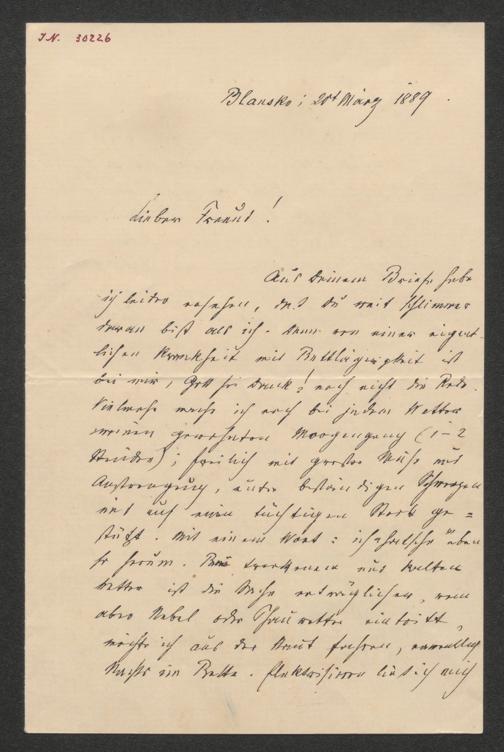 J.N. 30226
Blansko, 20t März 1889.
Lieber Freund!
Aus Deinem Briefe habe
ich leider ersehen, daß Du weit schlimmer
daran bist als ich. Denn von einer eigent-
lichen Krankheit mit Bettlägerigkeit ist
bei mir, Gott sei Dank! noch nicht die Rede.
Vielmehr mache ich noch bei jedem Wetter
meinen gewohnten Morgengang (1–2
Stunden); freilich mit großer Mühe und
Anstrengung, unter beständigen Schmerzen
und auf einen tüchtigen Stock ge=
stützt. Mit einem Wort: ich "hatsche" eben
so herum. Bei trockenem und kaltem
Wetter ist die Sache erträglicher, wenn
aber Nebel oder Thauwetter eintritt,
möchte ich aus der Haut fahren, namentlich
Nachts im Bette. Elektrisiren ließ ich mich